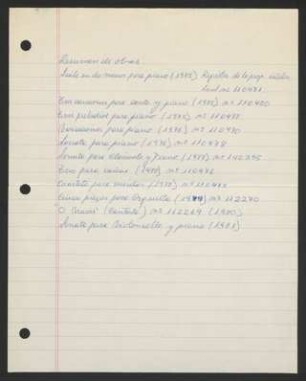 Resumen de obras
Suite en do menor para piano (1975) Registro de la prop. intelec-
tual nº 110481.
Tres canciones para canto y piano (1975) nº 110480
Tres preludios para piano (1975) nº 110475
Variaciones para piano (1976) nº 110470
Sonata para piano (1976) nº 110478
Sonata para Clarinete y Piano (1977) nº 110235
para (1977) nº 110476
Cuarteto para cuerdas (1978) nº 110477
piezas para Orquesta (1979) nº 112270
O (Cantata) nº 112269 (1980)
Sonata para Violoncello y piano (1981)